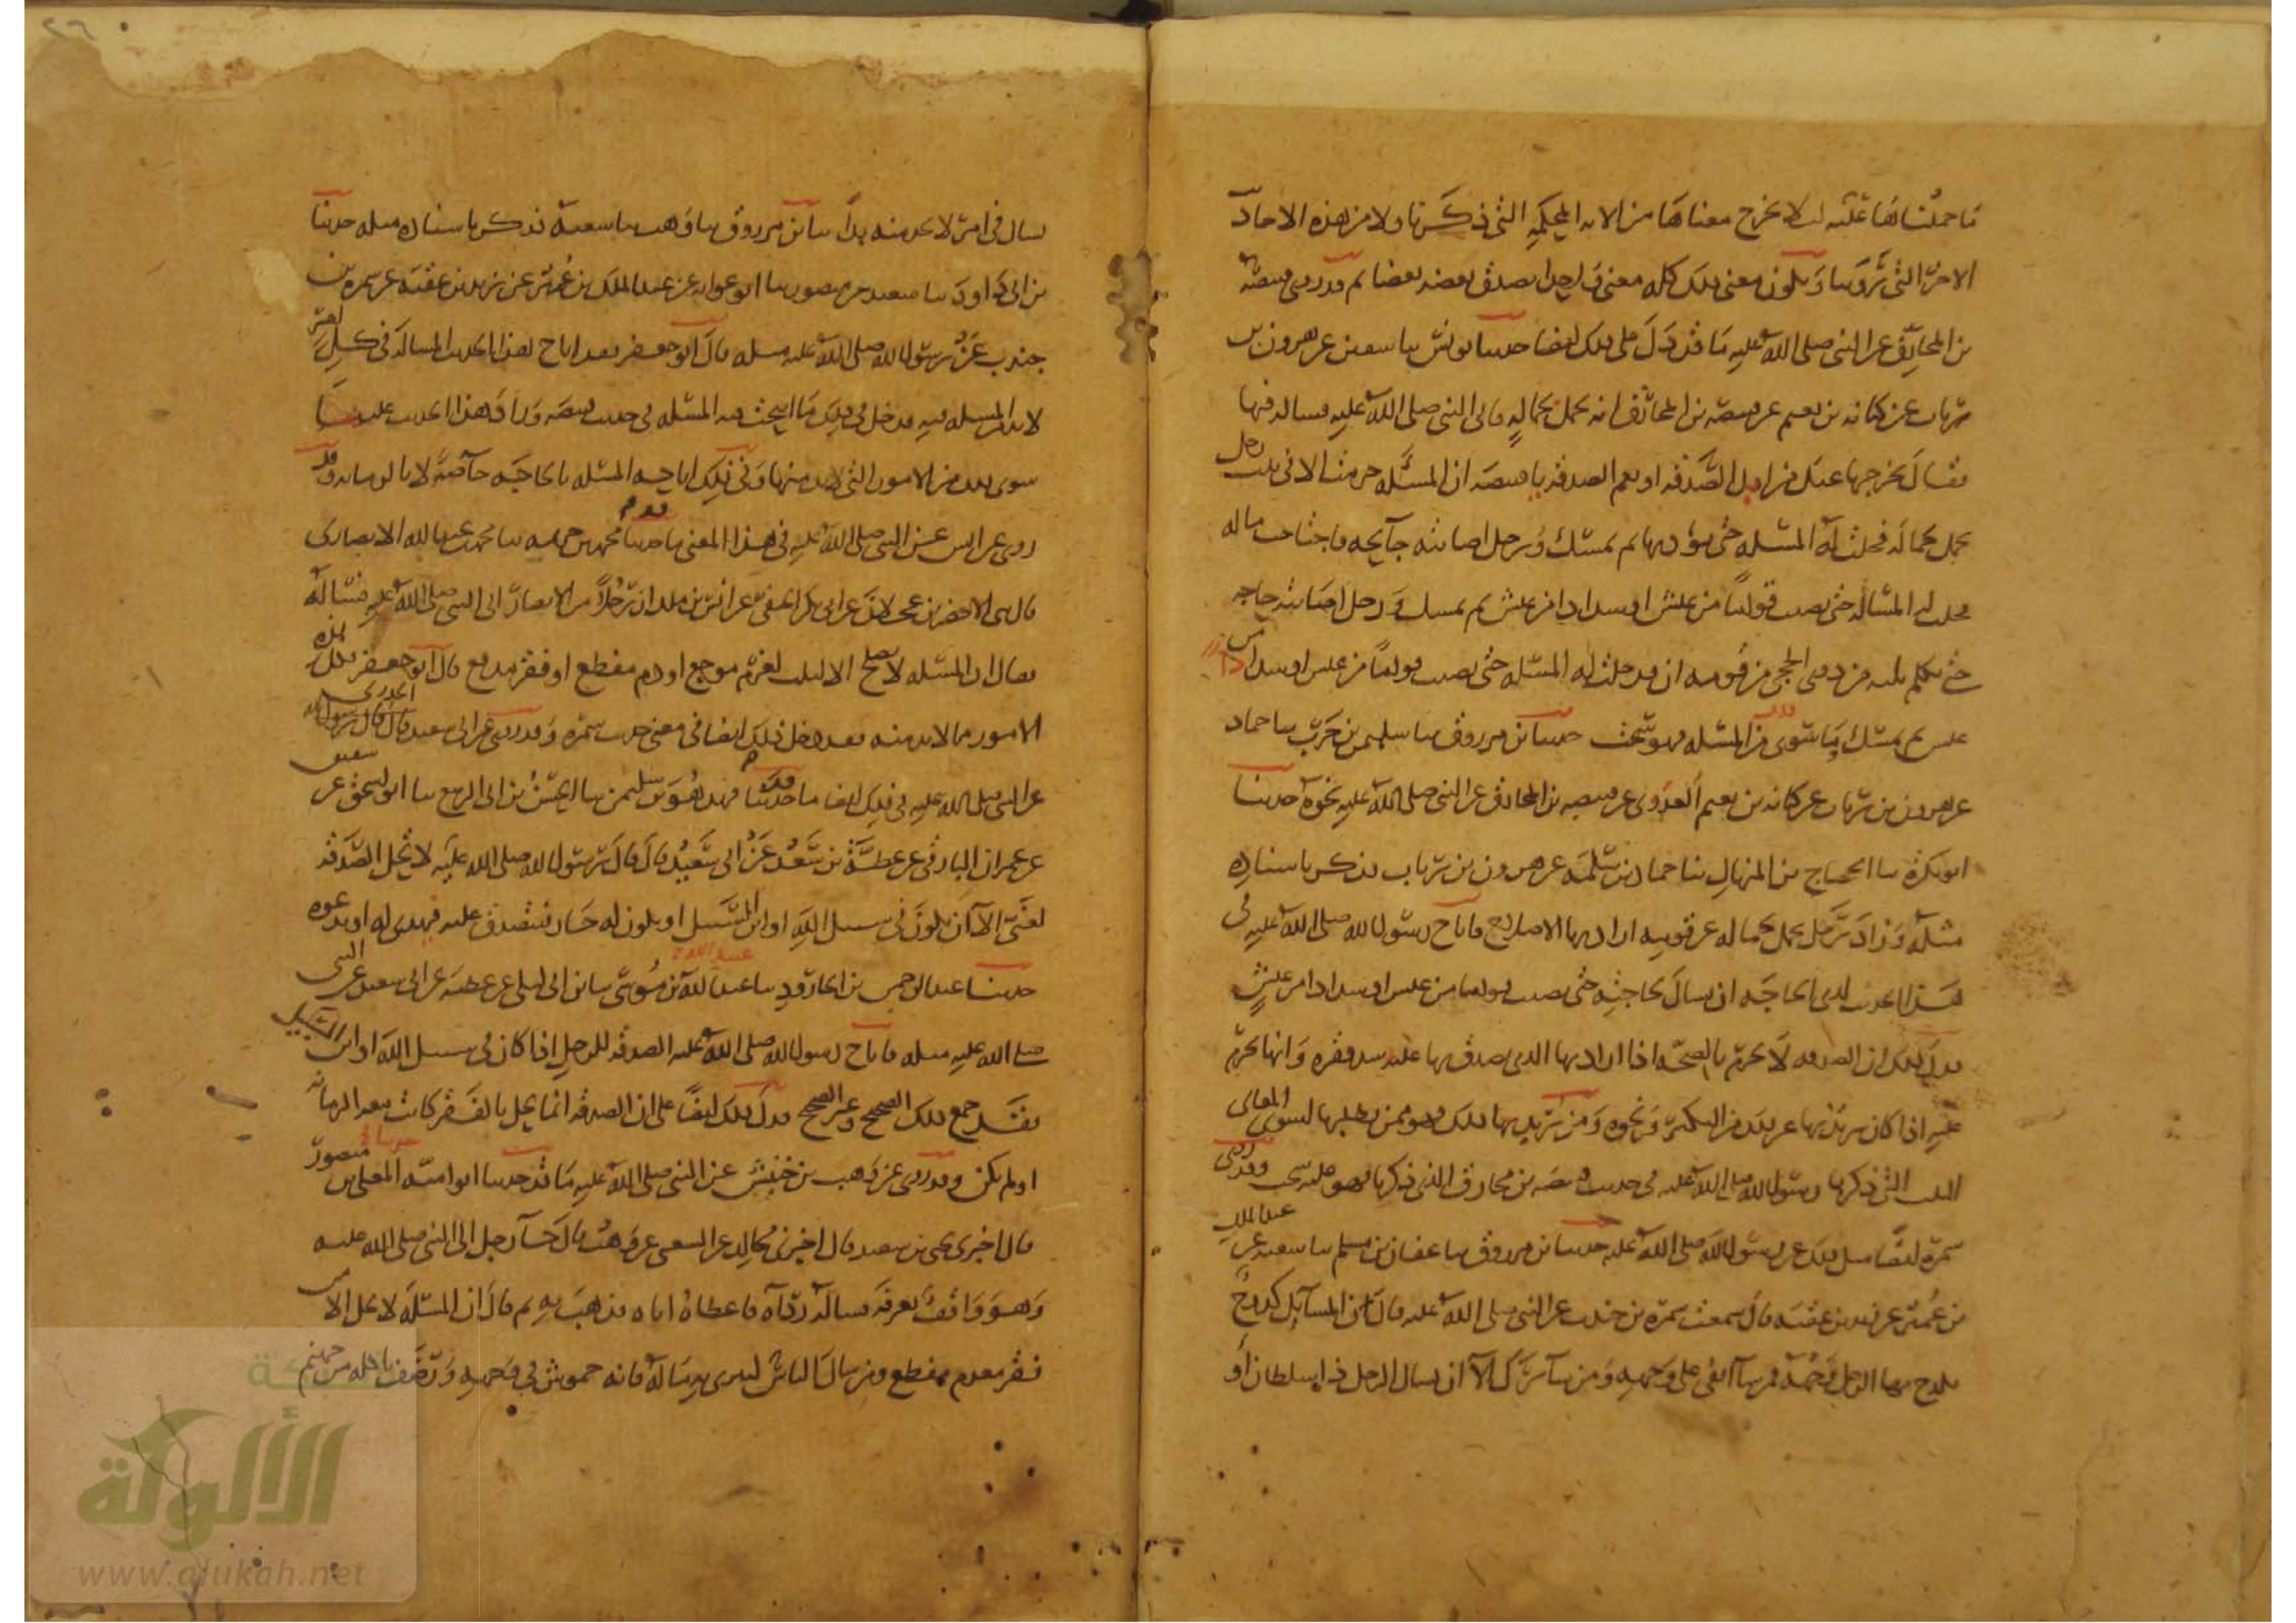 ما حملناها عليه لئلا يخرج معناها من الاية المحكمة التي ذكرنا ولا من هذه الاحاديث
الاخر التي روينا ويكون معنى ذلك كله معنى واحدا يصدق بعضه بعضا ثم قد روى قبيصة
بن المخارق عن النبي صلى الله عليه ما قد دل على ذلك ايضا حدثنا يونس سا سفين عن هرون بن
رياب عن كنانه بن نعيم عن قبيصة بن المخارق انه تحمل بحمالة فاتى النبي صلى الله عليه فساله فيها
فقال نخرجها عنك من ابل الصدقه او نعم الصدقه يا قبيصة ان المسئلة حرمت الا في ثلث رجل
تحمل بحمالة فحلت له المسئله حتى يؤديها ثم يمسك ورجل اصابته جائحه فاجتاحت ماله
فحلت له المسالة حتى يصيب قواما من عيش او سدادا من عيش ثم يمسك ورجل اصابته حاجه
حتى تكلم ثلثه من ذوى الحجى من قومه ان قد حلت له المسئله حتى يصيب قواما من عيش او سدادا من
عيش ثم يمسك وما سوى من المسئله فهو سحت حدثنا بن مرزوق سا سليمن بن حرب سا حماد
عن هرون بن رياب عن كنانه بن نعيم العدوى عن قبيصه بن المخارق عن النبي صلى الله عليه نحوه حدثنا
ابو بكرة سا الحجاج بن المنهال سا حماد بن سلمه عن هرون بن رياب فذكر باسناده
مثله وزاد رجل تحمل بحماله عن قومه اراد بها الاصلاح فاباح رسول الله صلى الله عليه في
هذا الحديث لذى الحاجه ان يسال لحاجته حتى يصيب قواما من عيش او سدادا من عيش
فدل ذلك ان الصدقه لا تحرم بالصحه اذا اراد بها الذى تصدق بها عليه سد فقره وانما تحرم
عليه اذا كان يريد بها غير ذلك من التكثر ونحوه ومن يريد بها ذلك فهو ممن يطلبها لسوى المعاني
الثلث التي ذكرها رسول الله صلى الله عليه في حديث قبيصه بن مخارق الذى ذكرنا فهو عليه سحت وقد روى
سمرة ايضا مثل ذلك عن رسول الله صلى الله عليه حدثنا بن مرزوق سا عفان بن مسلم سا سعيد عن عبد الملك
بن عمير عن زيد بن عقبه قال سمعت سمرة بن جندب عن النبي صلى الله عليه قال ان المسائل كدوح
يكدح بها الرجل وجهه فمن سا ابقى على وجهه ومن سا ترك الا ان يسال الرجل ذا سلطان او
يسال في امر لا يجد منه بدا سا بن مرزوق سا وهب سا سعبة فذكر باسناده مثله حدثنا
بن ابى داود سا سعيد بن منصور سا ابو عوانه عن عبد الملك بن عمير عن زيد بن عقبه عن سمرة بن
جندب عن رسول الله صلى الله عليه مثله قال ابو جعفر فقد اباح هذا الحديث المسالة في كل امر
لا بد من المسئله فيه فدخل في ذلك ما ابيحت فيه المسئله في حديث قبيصه وزاد هذا الحديث عليه ما
سوى ذلك من الامور التي لا بد منها وفي ذلك اباحه المسئله بالحاجه خاصة لا بالزمانه وقد
روى عن انس عن النبي صلى الله عليه في هذا المعنى ما قد حدثنا محمد بن خزيمه سا محمد بن عبد الله الانصارى
قال حدثنى الاخضر بن عجلان عن ابى بكر الحنفى عن انس بن ملك ان رجلا من الانصار اتى النبي صلى الله عليه فساله
فقال ان المسئله لا تصلح الا لثلث لغرم موجع او دم مفظع او فقر مدقع قال ابو جعفر فكل هذه
الامور مما لا بد منه فقد دخل ذلك ايضا في معنى حديث سمرة وقد روى عن ابى سعيد الخدرى
عن النبي صلى الله عليه في ذلك ايضا ما قد حدثنا فهد سا الحسن بن الربيع سا ابو اسحق عن سفين
عن عمران البارقي عن عطية بن سعد عن ابى سعيد قال قال رسول الله صلى الله عليه لا تحل الصدقه
لغني الا ان يكون في سبيل الله او ابن السبيل او يكون له جار فتصدق عليه فيهدى له او يدعوه
حدثنا عبد الرحمن بن الجارود سا عبيد الله بن موسى سا بن ابى ليلى عن عطيه عن ابى سعيد عن النبي
صلى الله عليه مثله فاباح رسول الله صلى الله عليه الصدقه للرجل اذا كان في سبيل الله او ابن السبيل
فقد جمع ذلك الصحيح وغير الصحيح فدل ذلك ايضا على ان الصدقه انما تحل بالفقر كانت معه الزمانه
او لم تكن وقد روى عن وهب بن خنبش عن النبي صلى الله عليه ما قد حدثنا ابو اميه المعلى بن منصور
قال اخبرني يحيى بن سعيد قال اخبرني مجالد عن الشعبي عن وهب قال جا رجل الى النبي صلى الله عليه
وهو واقف بعرفة فساله رداه فاعطاه اياه فذهب به ثم قال ان المسئله لا تحل الا من
فقر مدقع او غرم مفظع ومن سال الناس ليثرى به ماله فانه خموش في وجهه ورضف ياكله من جهنم
الألوكة
www.alukah.net